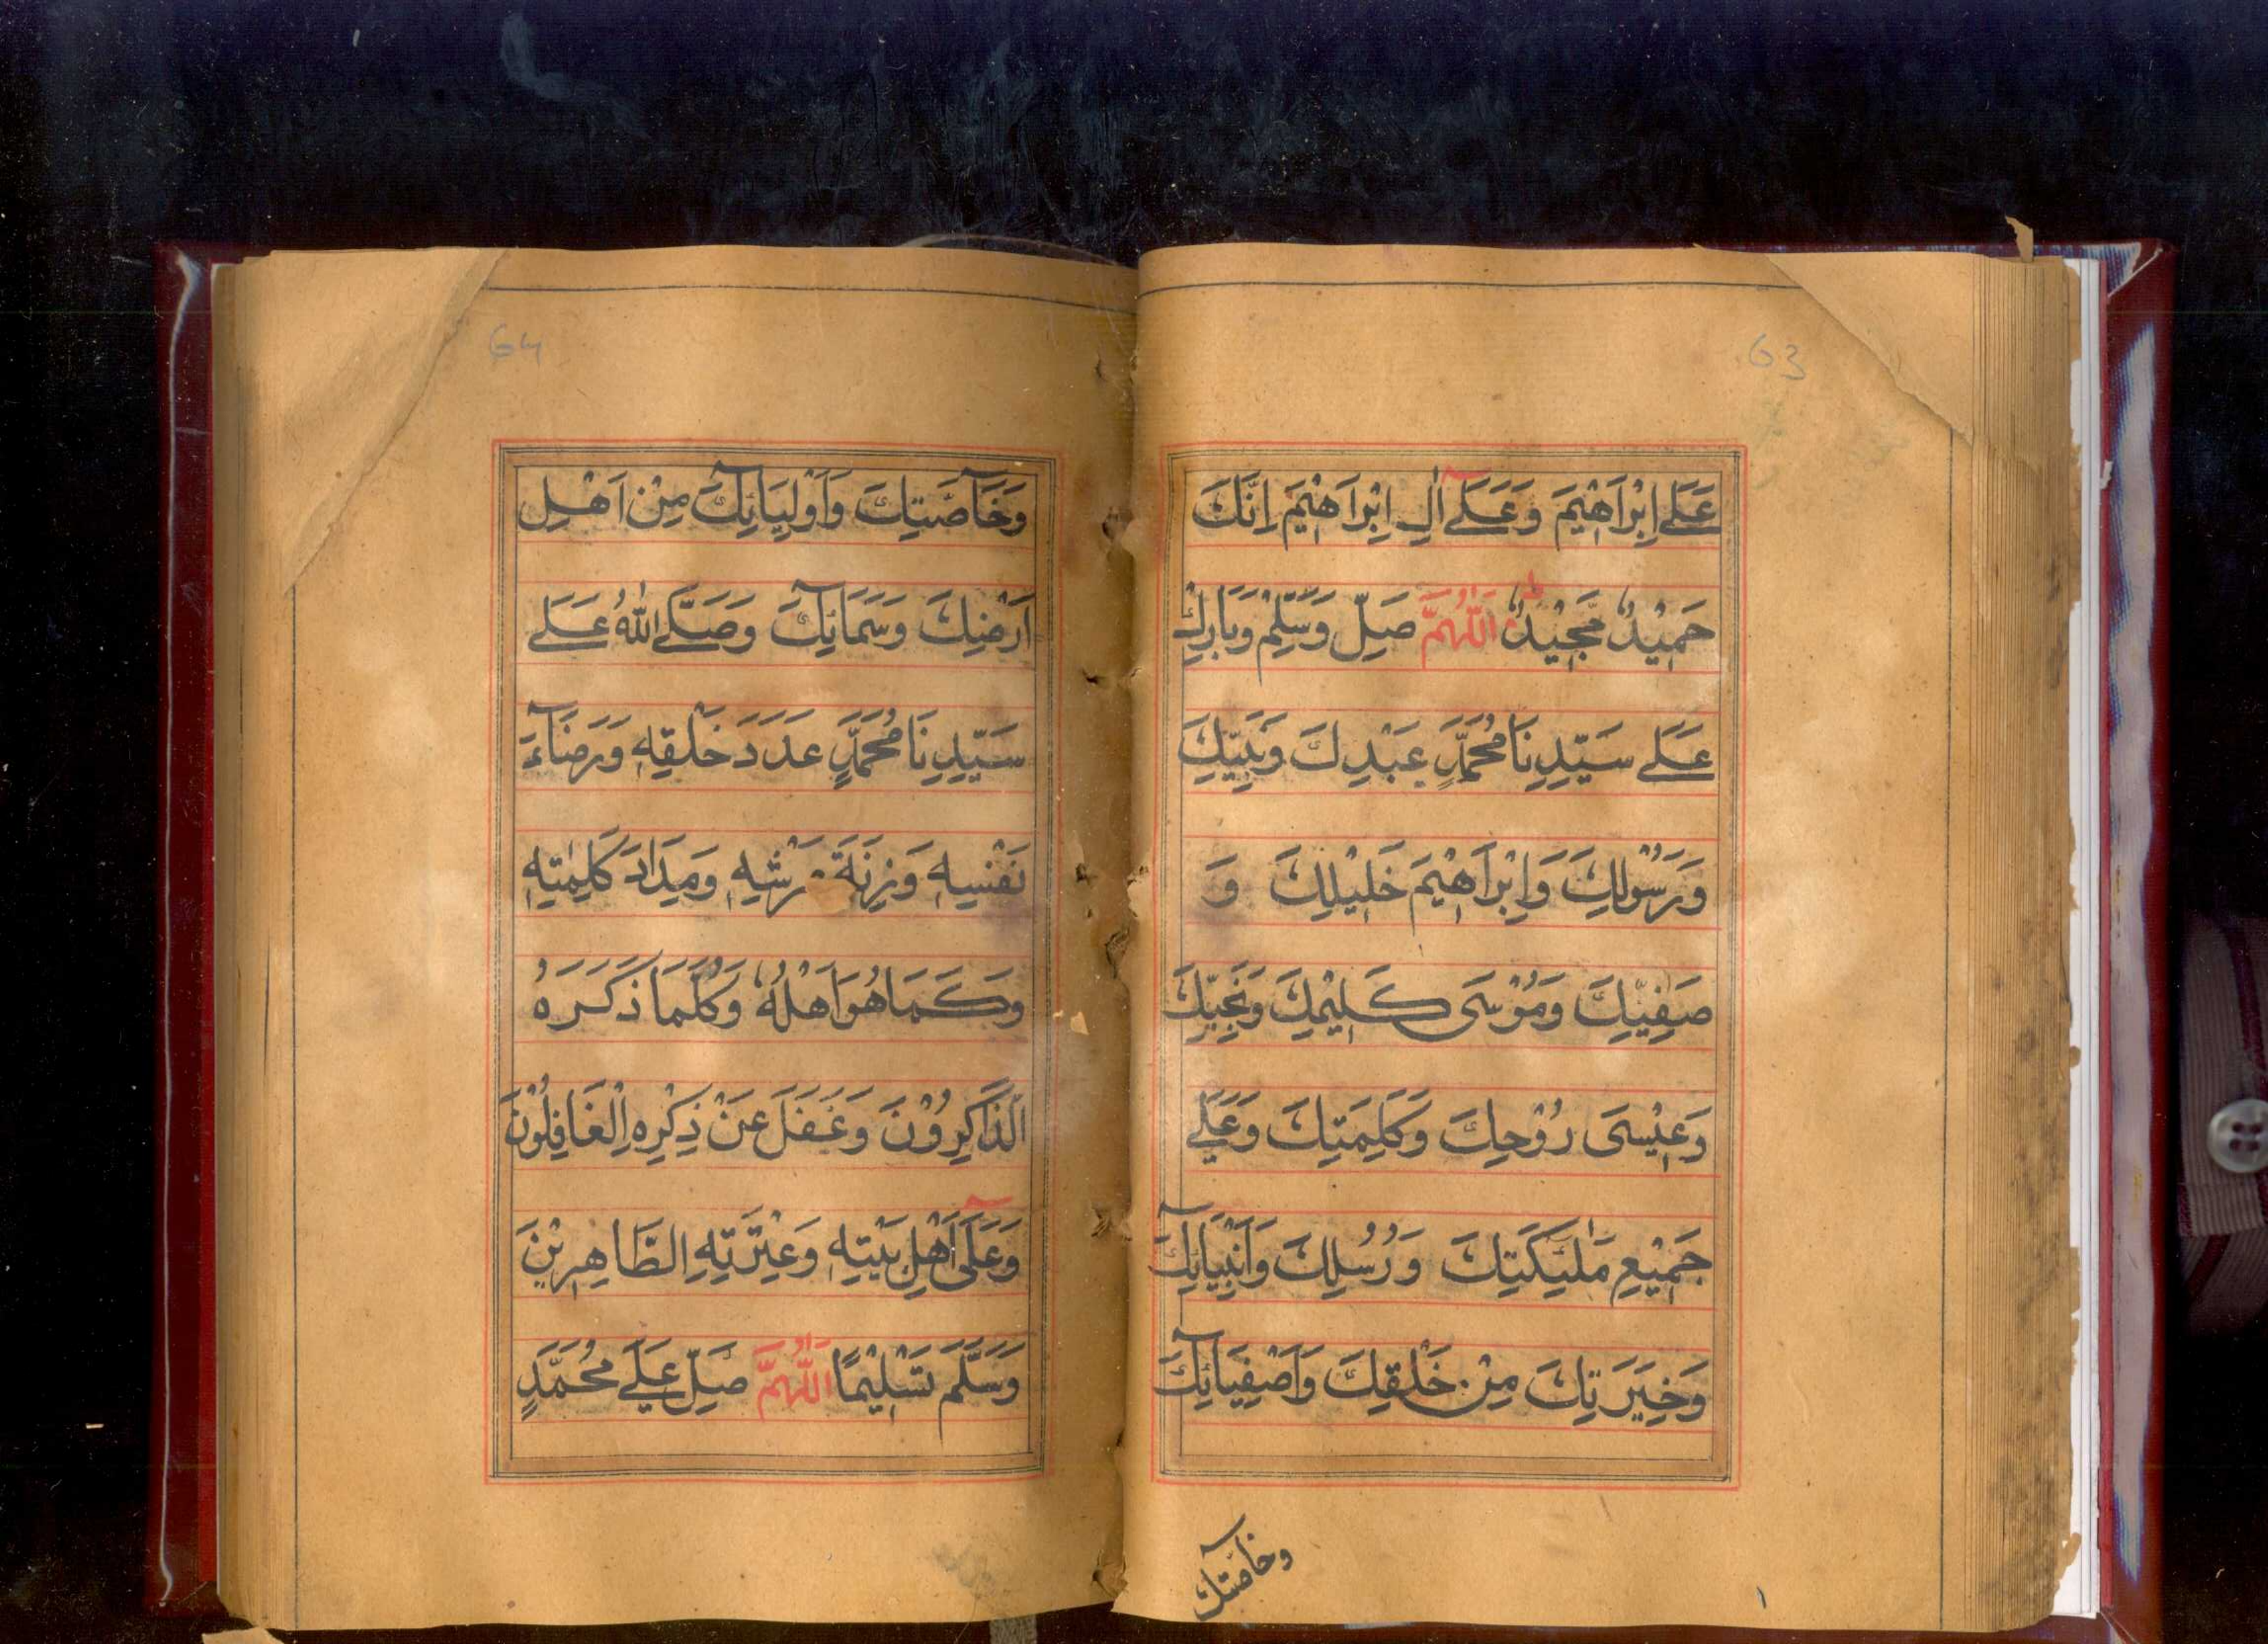 63
عَلَے اِبْرَاهِيْمَ وَعَلَےٓ اٰلِ اِبْرَاهِيْمَ اِنَّكَ
حَمِيْدٌ مَّجِيْدٌ اَللّٰهُمَّ صَلِّ وَسَلِّمْ وَبَارِكْ
عَلَے سَيِّدِنَا مُحَمَّدٍ عَبْدِكَ وَنَبِيِّكَ
وَرَسُوْلِكَ وَاِبْرَاهِيْمَ خَلِيْلِكَ وَ
صَفِيِّكَ وَمُوْسَى كَلِيْمِكَ وَنَجِيِّكَ
وَعِيْسَى رُوْحِكَ وَكَلِمَتِكَ وَعَلٰے
جَمِيْعِ مَلٰٓئِكَتِكَ وَرُسُلِكَ وَاَنْبِيَآئِكَ
وَخِيَرَتِكَ مِنْ خَلْقِكَ وَاَصْفِيَآئِكَ
وخآصّتك
64
وَخَآصَّتِكَ وَاَوْلِيَآئِكَ مِنْ اَهْلِ
اَرْضِكَ وَسَمَآئِكَ وَصَلَّے اللّٰهُ عَلَے
سَيِّدِنَا مُحَمَّدٍ عَدَدَ خَلْقِهٖ وَرَضَآءَ
نَفْسِهٖ وَزِنَةَ عَرْشِهٖ وَمِدَادَ كَلِمٰتِهٖ
وَكَمَا هُوَ اَهْلُهٗ وَكُلَّمَا ذَكَرَهُ
الذَّاكِرُوْنَ وَغَفَلَ عَنْ ذِكْرِهِ الْغَافِلُوْنَ
وَعَلَىٓ اَهْلِ بَيْتِهٖ وَعِتْرَتِهِ الطَّاهِرِيْنَ
وَسَلَّمَ تَسْلِيْمًا اَللّٰهُمَّ صَلِّ عَلَے مُحَمَّدٍ